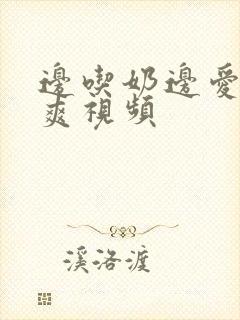 邊喫奶邊愛
爽視頻
溪洛渡